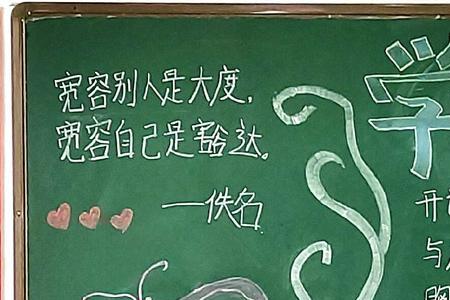 宽容别人是大度,
宽容自己是豁达。
一佚名
学
开
与
胸